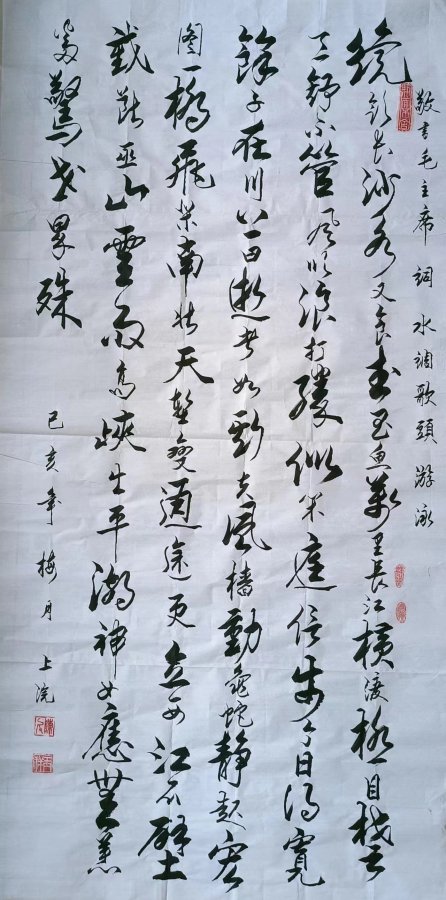 敬書毛主席詞水調歌頭游泳
纔飲長沙水又食武昌魚萬里長江橫渡極目楚
天舒不管風吹浪打勝似閑庭信步今日得寬
餘子在川上曰逝者如斯夫風檣動龜蛇靜起宏
圖一橋飛架南北天塹變通途更立西江石壁
截斷巫山雲雨高峽出平湖神女應無恙
當驚世界殊
己亥年梅月上浣